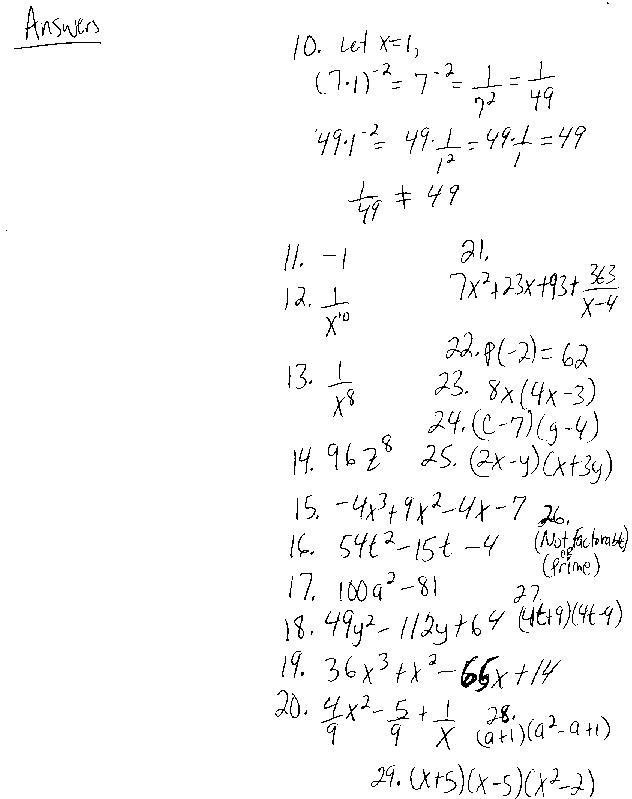 Answers
10. Let x=1,
(7·1)⁻² = 7⁻² = 1/7² = 1/49
49·1⁻² = 49·1/1² = 49·1/1 = 49
1/49 ≠ 49
11. -1
12. 1/x¹⁰
13. 1/x⁸
14. 96z⁸
15. -4x³+9x²-4x-7
16. 54t²-15t-4
17. 100a²-81
18. 49y²-112y+64
19. 36x³+x²-65x+14
20. 4/9x²-5/9+1/x
21.
7x²+23x+93+363/x-4
22. P(-2)=62
23. 8x(4x-3)
24. (c-7)(g-4)
25. (2x-y)(x+3y)
26.
(Not factorable)
or
(Prime)
27.
(4t+9)(4t-9)
28.
(a+1)(a²-a+1)
29. (x+5)(x-5)(x²-2)